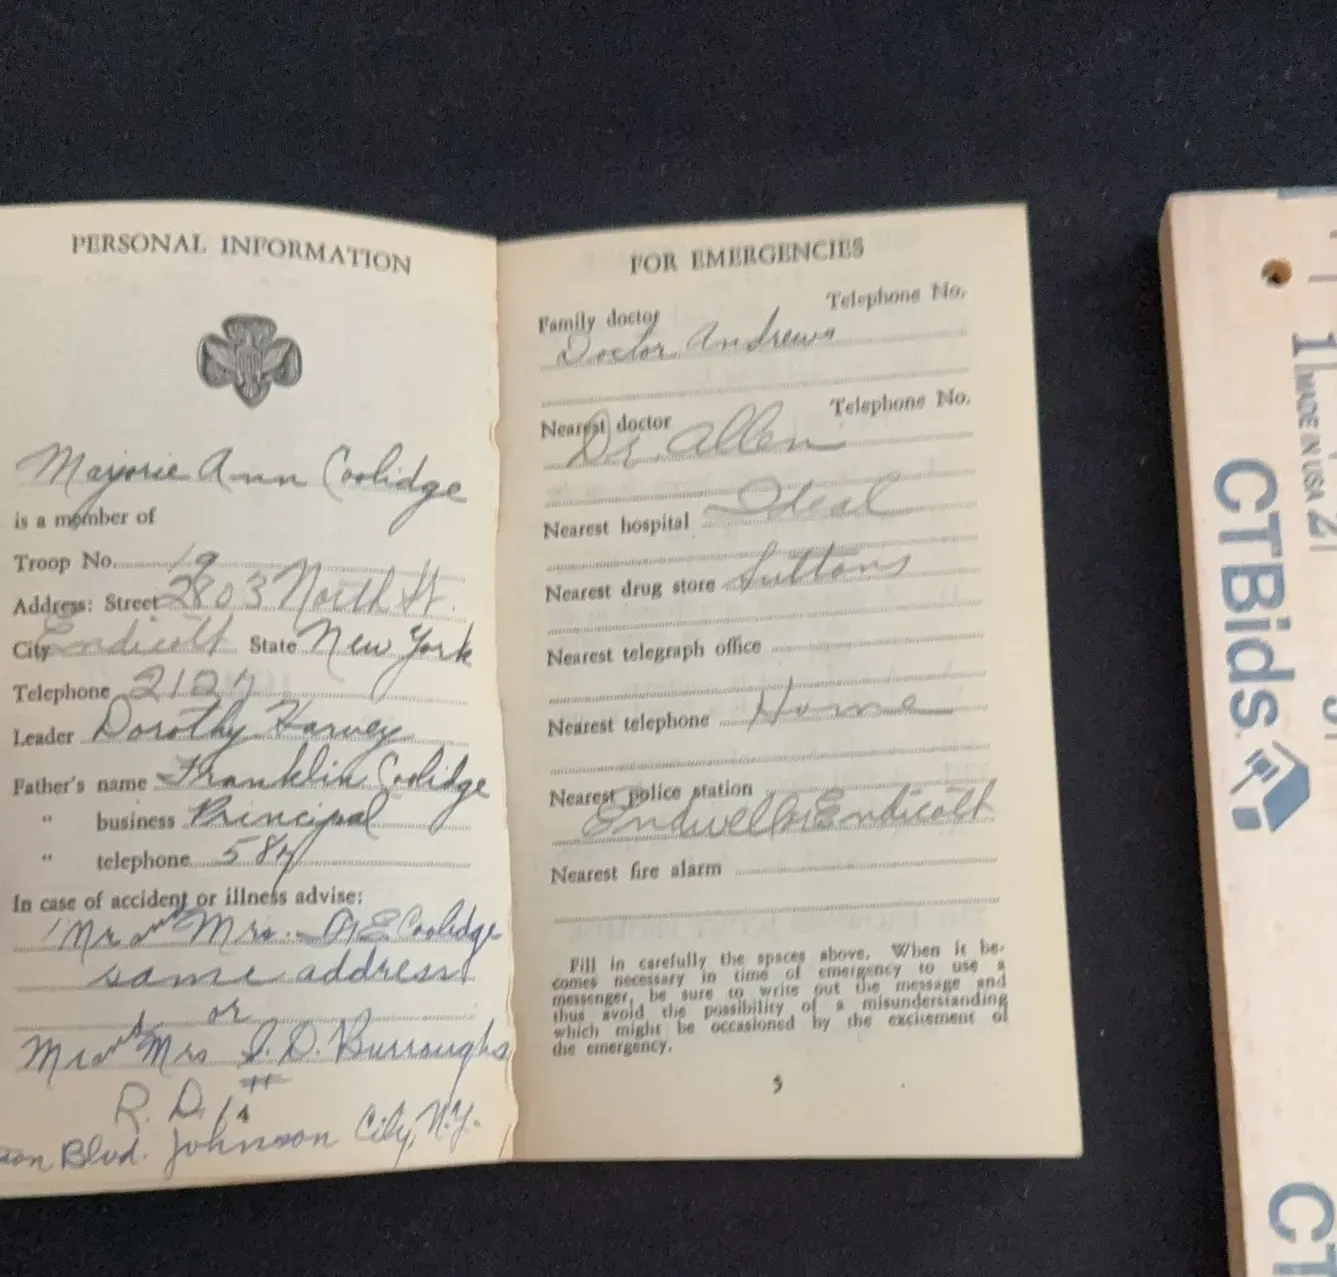 PERSONAL INFORMATION
Marjorie Ann Coolidge
is a member of
Troop No. 19
Address: Street 2803 North St.
City Endicott State New York
Telephone 2107
Leader Dorothy Harvey
Father's name Franklin Coolidge
" business Principal
" telephone 584
In case of accident or illness advise:
Mr and Mrs. Coolidge
same address
or
Mr and Mrs S. D. Burroughs
R. D. #
Blvd. Johnson City, N.Y.
FOR EMERGENCIES
Family doctor Telephone No.
Doctor Andrews
Nearest doctor Telephone No.
Dr. Allen
Nearest hospital Ideal
Nearest drug store Suttons
Nearest telegraph office
Nearest telephone Home
Nearest police station
Endwell Endicott
Nearest fire alarm
Fill in carefully the spaces above. When it be-
comes necessary in time of emergency to use a
messenger, be sure to write out the message and
thus avoid the possibility of a misunderstanding
which might be occasioned by the excitement of
the emergency.
5
1
MADE IN USA
2
CTBids
CT